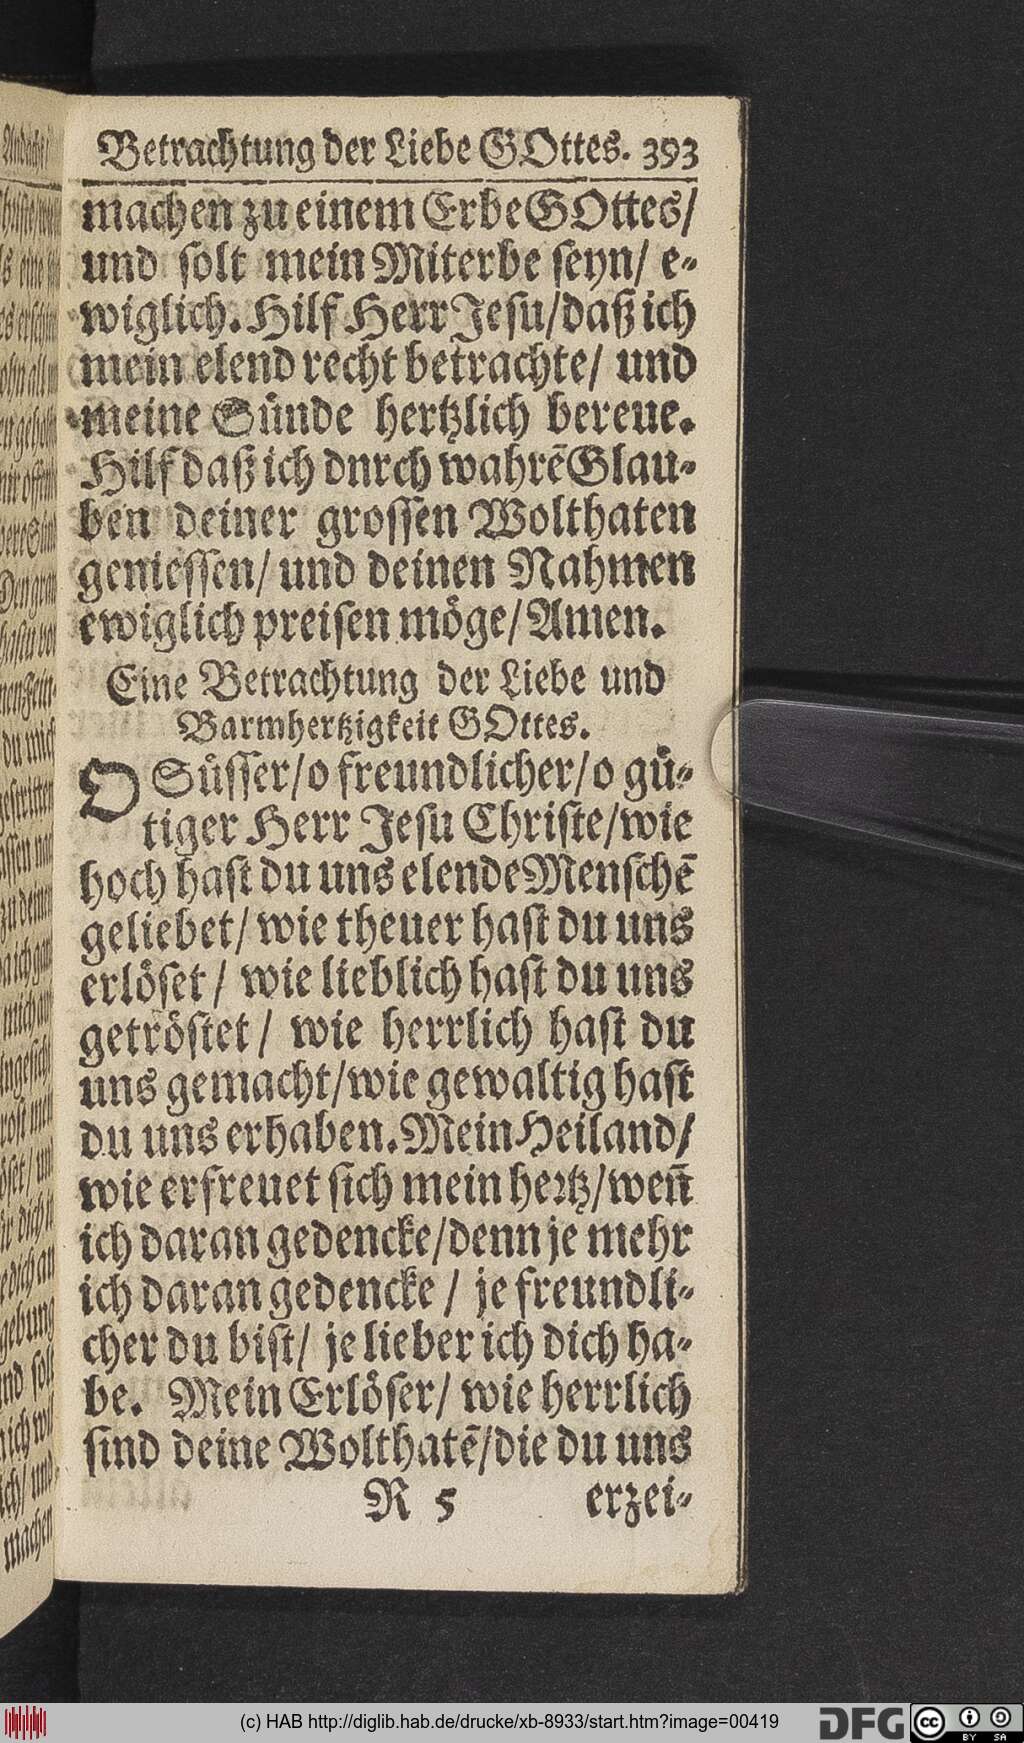 Betrachtung der Liebe GOttes. 393
machen zu einem Erbe GOttes/
und solt mein Miterbe seyn/ e-
wiglich. Hilf Herr Jesu/daß ich
mein elend recht betrachte/ und
meine Sünde hertzlich bereue.
Hilf daß ich dnrch wahrē Glau-
ben deiner grossen Wolthaten
geniessen/ und deinen Nahmen
ewiglich preisen möge/ Amen.
Eine Betrachtung der Liebe und
Barmhertzigkeit GOttes.
O Süsser/o freundlicher/o gü-
tiger Herr Jesu Christe/wie
hoch hast du uns elende Menschē
geliebet/ wie theuer hast du uns
erlöset/ wie lieblich hast du uns
getröstet/ wie herrlich hast du
uns gemacht/wie gewaltig hast
du uns erhaben. Mein Heiland/
wie erfreuet sich mein hertz/weñ
ich daran gedencke/denn je mehr
ich daran gedencke / je freundli-
cher du bist/ je lieber ich dich ha-
be. Mein Erlöser/ wie herrlich
sind deine Wolthatē/die du uns
R 5 erzei-
(c) HAB http://diglib.hab.de/drucke/xb-8933/start.htm?image=00419
DFG
cc BY SA